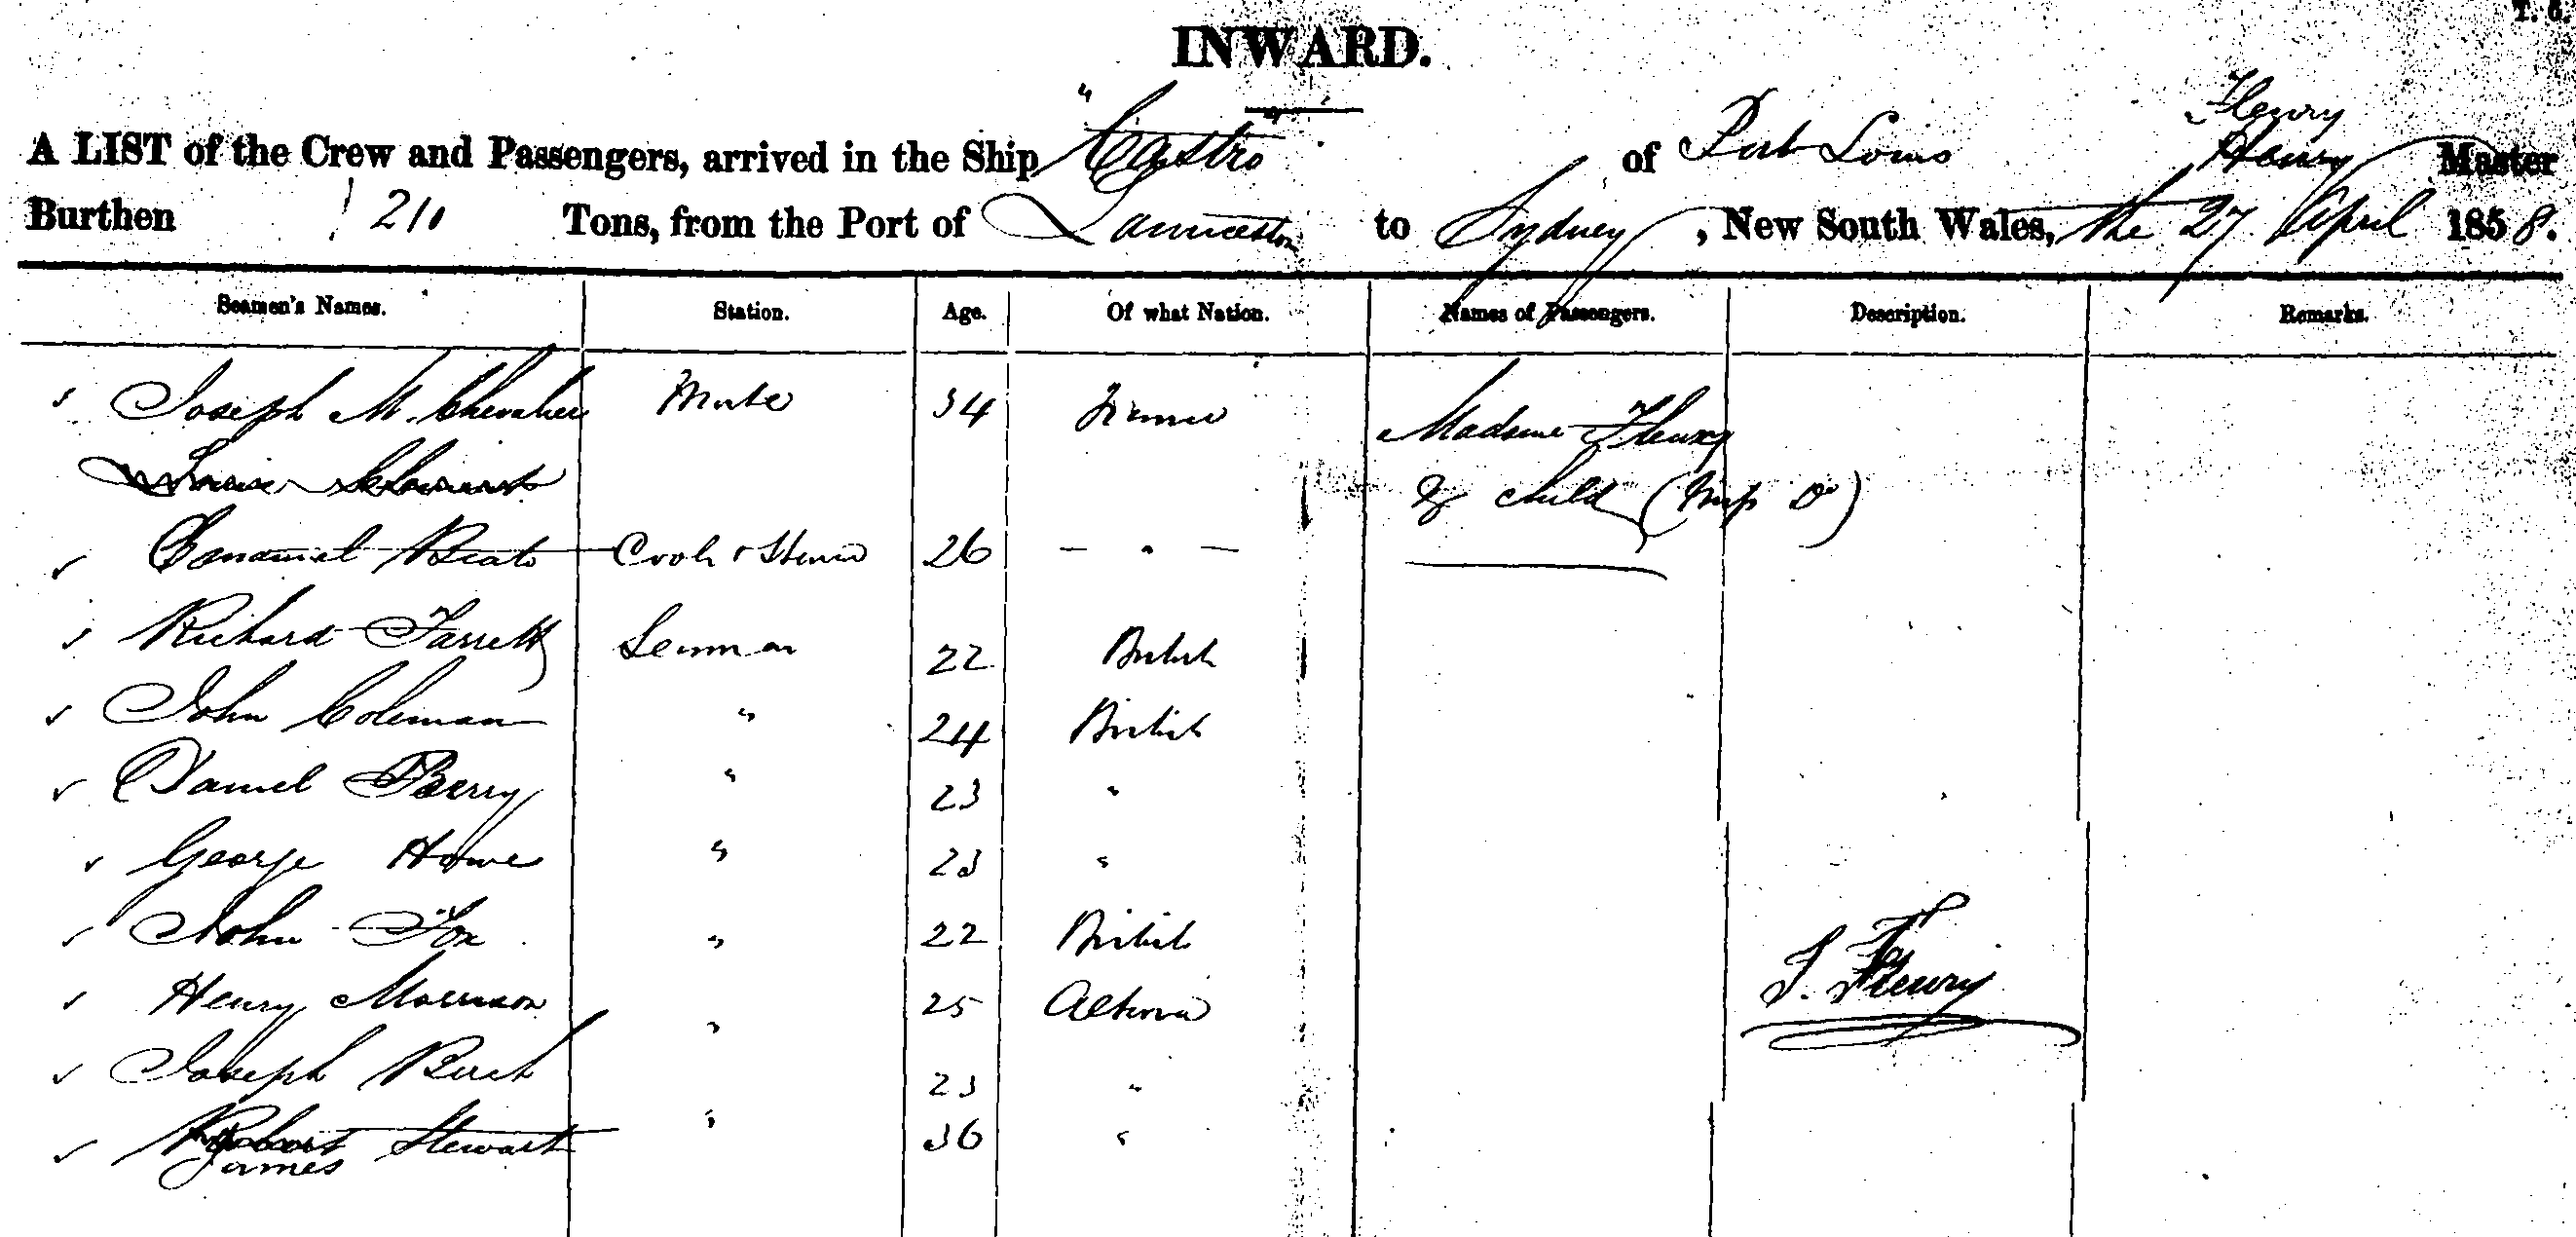 T. 6.
INWARD.
A LIST of the Crew and Passengers, arrived in the Ship "Castro" of Port Louis Fleury Henry Master
Burthen 210 Tons, from the Port of Launceston to Sydney, New South Wales, the 27 April 1858.
Seamen's Names. Station. Age. Of what Nation. Names of Passengers. Description. Remarks.
Joseph M. Chevalier Mate 34 France Madame Fleury
Louis & child (
Emanuel Cook & Stewd 26 — " —
Richard Jarrett Seaman 22 British
John Coleman " 24 British
Daniel Berry " 23 "
George Howe " 23 "
John Fox " 22 British
Henry Morrison " 25 Altona
J. Fleury
Joseph Burt " 23 "
Robert Stewart " 36 "
James